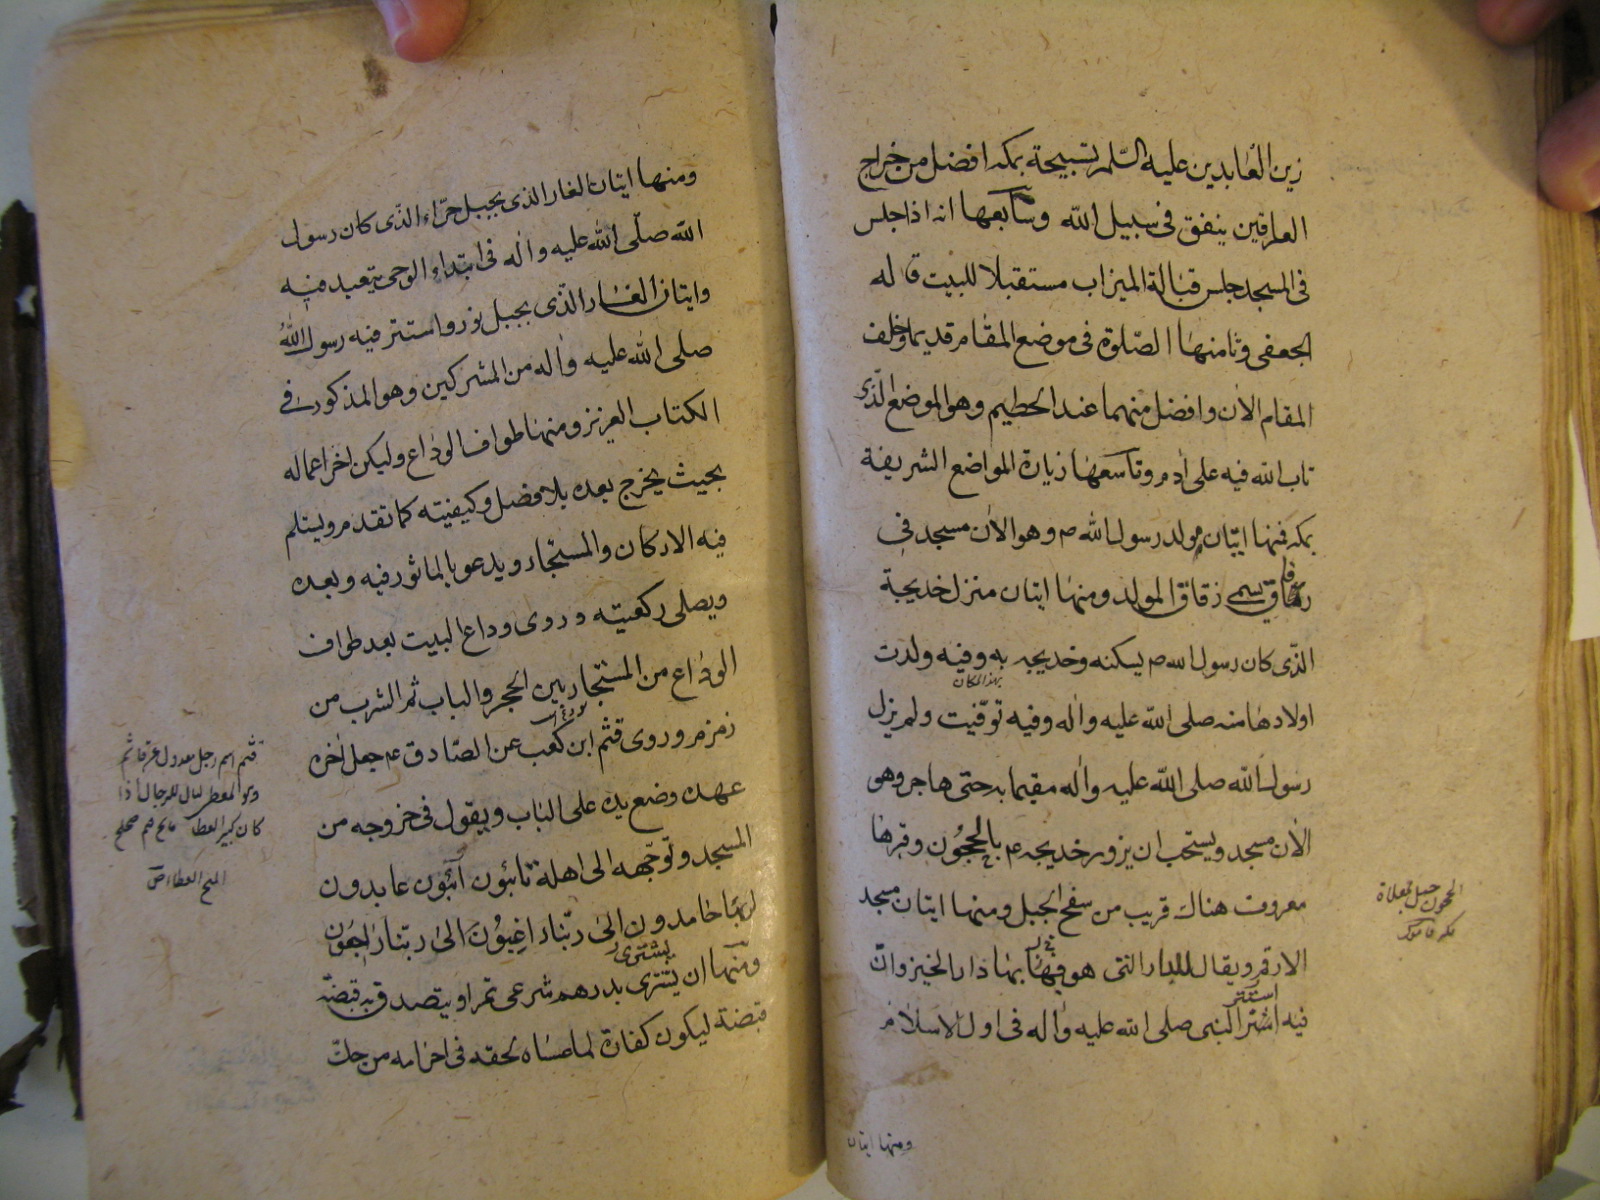 زين العابدين عليه السلم تسبيحة بمكه افضل من خراج
العراقين ينفق فى سبيل الله وسابعها انه اذا جلس
فى المسجد جلس قبالة الميزاب مستقبلا للبيت قاله
الجعفى وثامنها الصلوة فى موضع المقام قديما وخلف
المقام الان وافضل منهما عند الحطيم وهو الموضع الذى
تاب الله فيه على ادم وتاسعها زيارة المواضع الشريفة
بمكه فمنها اتيان مولد رسول الله ص وهو الان مسجد فى
زقاق يسمى زقاق المولد ومنها اتيان منزل خديجة
الذى كان رسول الله ص يسكنه وخديجه به وفيه ولدت
بهذا المكان
اولادها منه صلى الله عليه واله وفيه توفيت ولم يزل
رسول الله صلى الله عليه واله مقيما به حتى هاجر وهو
الان مسجد ويستحب ان يزور خديجه ع بالحجون وقبرها
معروف هناك قريب من سفح الجبل ومنها اتيان مسجد
الارقم ويقال للدار التى هو فيها بها دار الخيزران
استتر
فيه اشتر النبى صلى الله عليه واله فى اول الاسلام
الحجون جبل بمعلاة
مكه قاموس
ومنها اتيان
ومنها اتيان الغار الذى بجبل حراء الذى كان رسول
الله صلى الله عليه واله فى ابتداء الوحى يتعبد فيه
واتيان الغار الذى بجبل ثور واستتر فيه رسول الله
صلى الله عليه واله من المشركين وهو المذكور فى
الكتاب العزيز ومنها طواف الوداع وليكن اخر اعماله
بحيث يخرج بعده بلا فصل وكيفيته كما تقدم ويستلم
فيه الاركان والمستجار ويدعو بالماثور فيه وبعده
ويصلى ركعتيه وروى وداع البيت بعد طواف
الوداع من المستجار بين الحجر والباب ثم الشرب من
زمزم وروى قثم ابن كعب عن الصادق ع جعل اخره
عهده وضع يده على الباب ويقول فى خروجه من
المسجد وتوجهه الى اهله تائبون آئبون عابدون
لربنا حامدون الى ربنا راغبون الى ربنا راجعون
يشترى
ومنها ان يشترى بدرهم شرعى تمرا ويتصدق به قبضة
قبضة ليكون كفارة لما عساه لحقه فى احرامه من حك
قثم اسم رجل معدول عن قاثم
وهو المعطى
للرجال اذا
كان كثير العطا